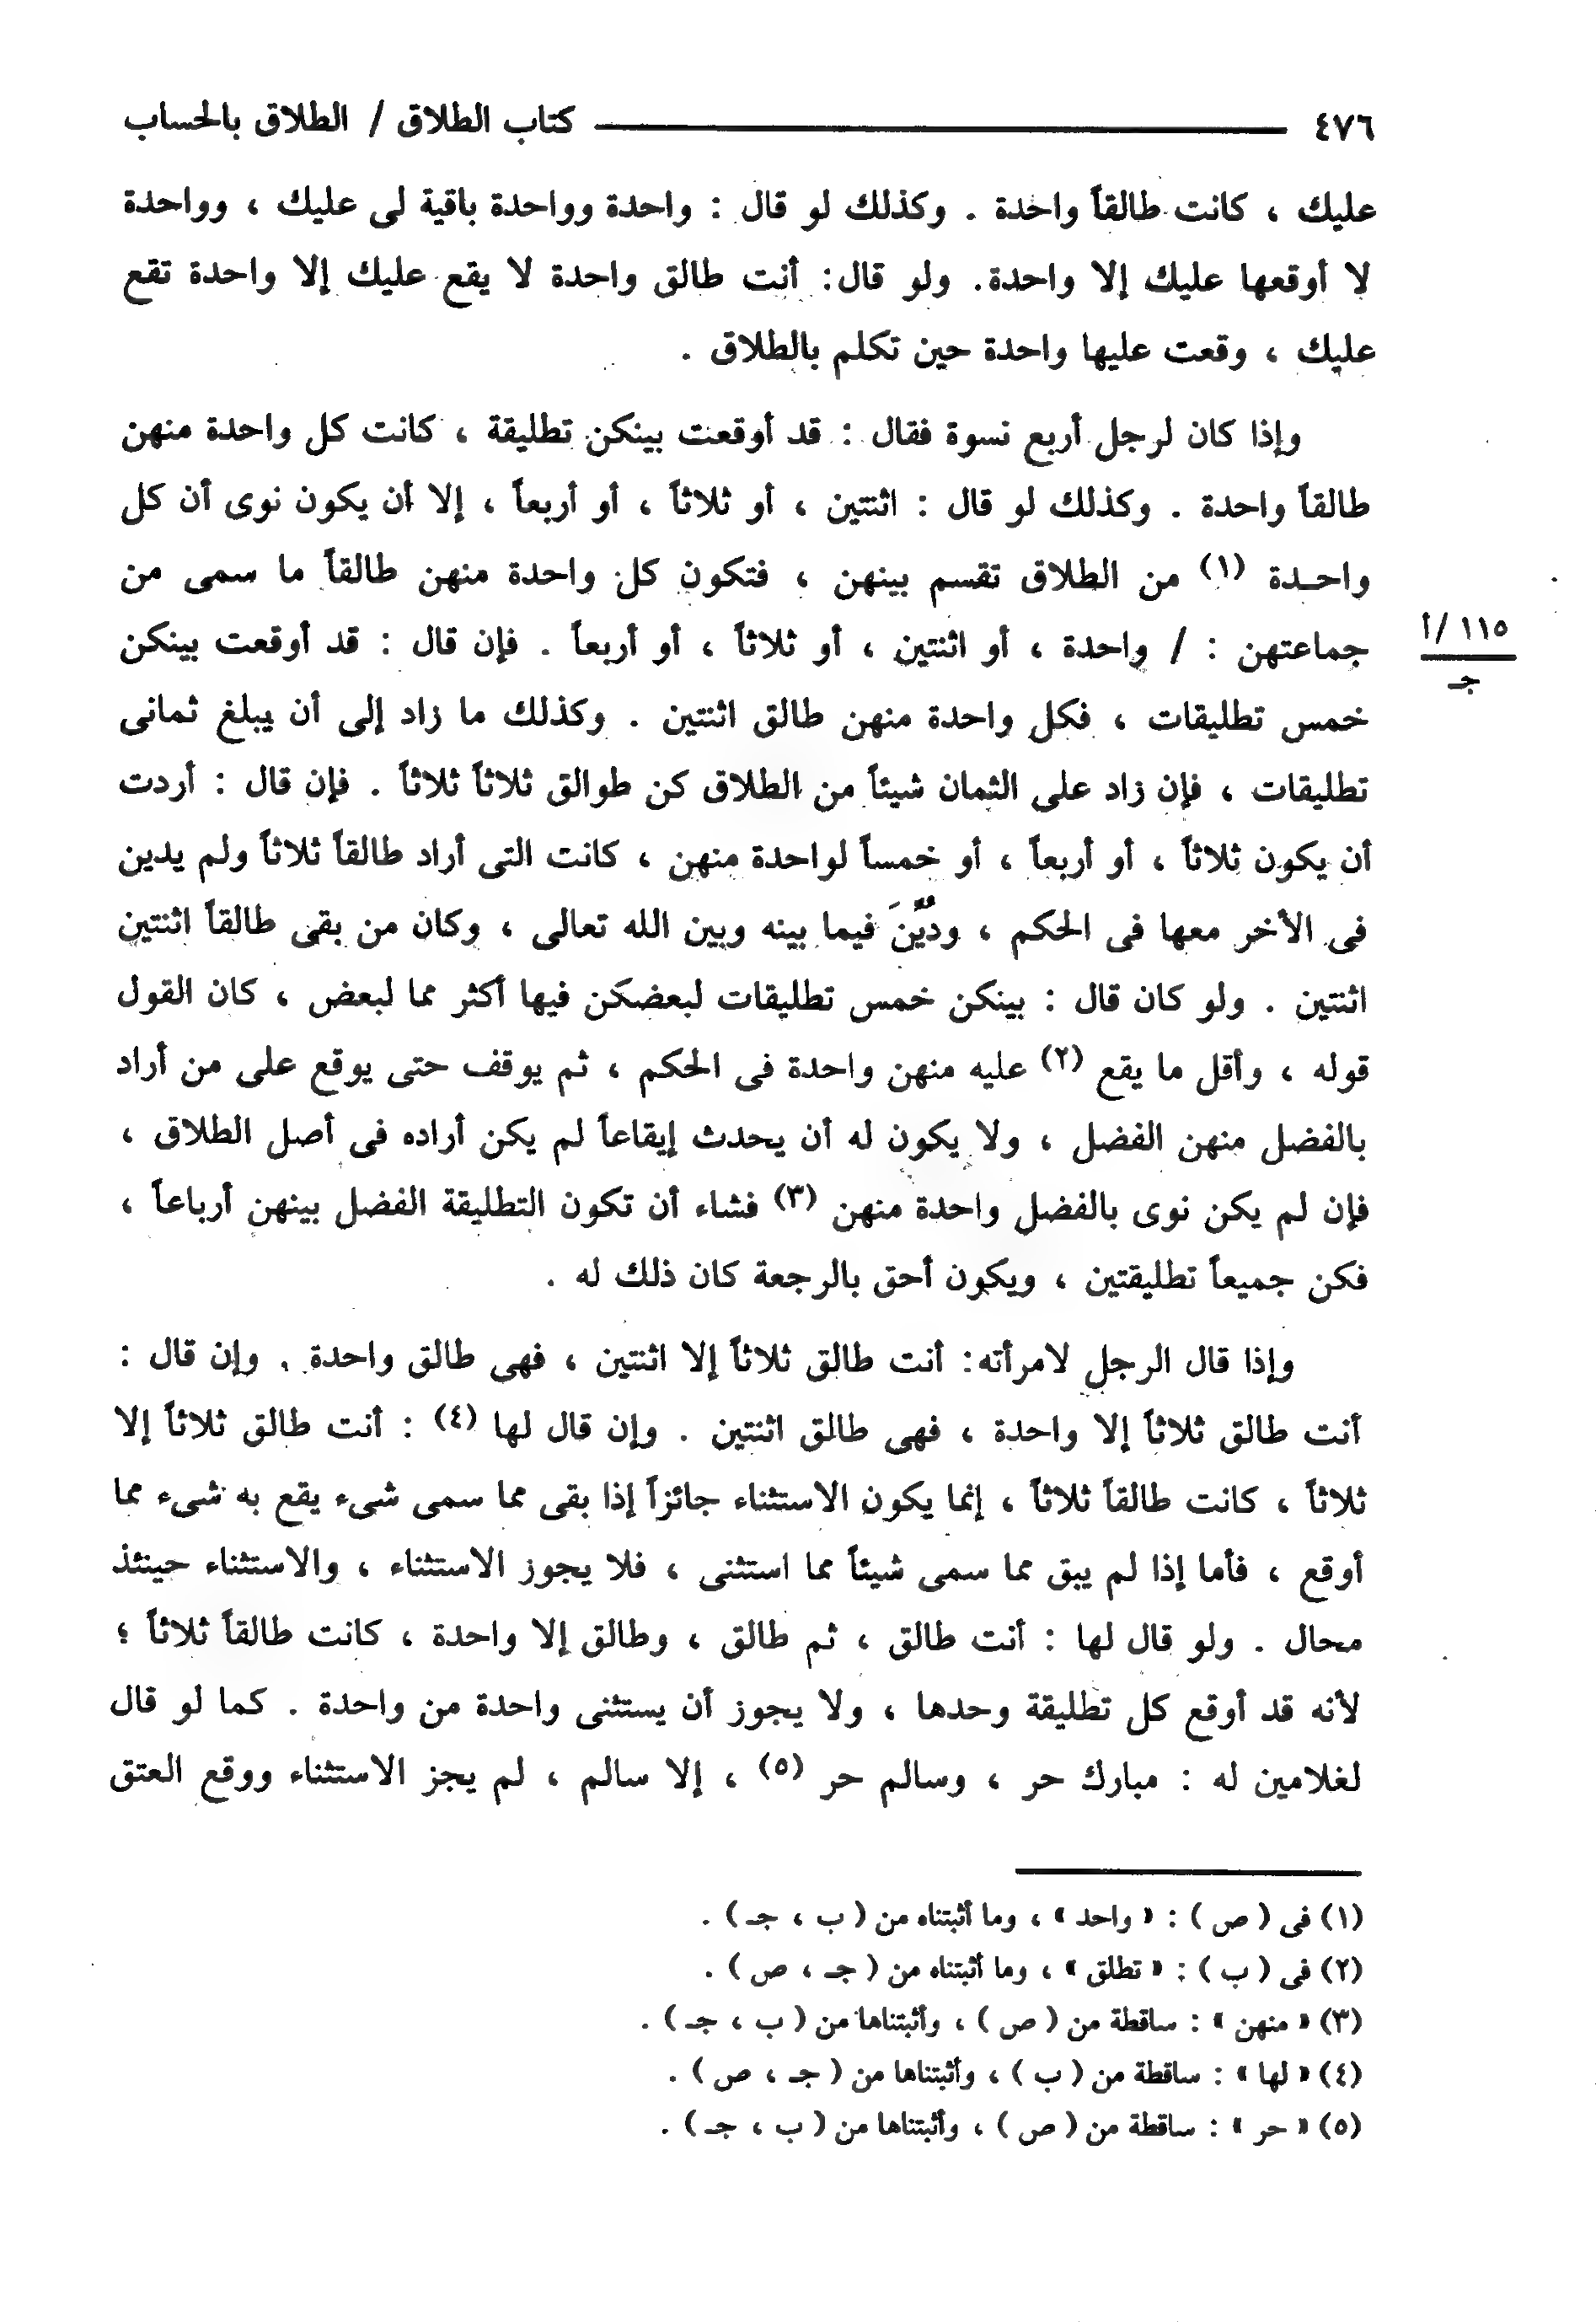 ٤٧٦ كتاب الطلاق / الطلاق بالحساب
عليك ، كانت طالقاً واحدة . وكذلك لو قال : واحدة وواحدة باقية لى عليك ، وواحدة
لا أوقعها عليك إلا واحدة. ولو قال: أنت طالق واحدة لا يقع عليك إلا واحدة تقع
عليك ، وقعت عليها واحدة حين تكلم بالطلاق .
وإذا كان لرجل أربع نسوة فقال : قد أوقعت بينكن تطليقة ، كانت كل واحدة منهن
طالقاً واحدة . وكذلك لو قال : اثنتين ، أو ثلاثاً ، أو أربعاً ، إلا أن يكون نوى أن كل
واحـدة (١) من الطلاق تقسم بينهن ، فتكون كل واحدة منهن طالقاً ما سمى من
جماعتهن : / واحدة ، أو اثنتين ، أو ثلاثاً ، أو أربعاً . فإن قال : قد أوقعت بينكن
١١٥ /أ
جـ
خمس تطليقات ، فكل واحدة منهن طالق اثنتين . وكذلك ما زاد إلى أن يبلغ ثمانى
تطليقات ، فإن زاد على الثمان شيئاً من الطلاق كن طوالق ثلاثاً ثلاثاً . فإن قال : أردت
أن يكون ثلاثاً ، أو أربعاً ، أو خمساً لواحدة منهن ، كانت التى أراد طالقاً ثلاثاً ولم يدين
فى الأخر معها فى الحكم ، ودُيِّنَ فيما بينه وبين الله تعالى ، وكان من بقى طالقاً اثنتين
اثنتين . ولو كان قال : بينكن خمس تطليقات لبعضكن فيها أكثر مما لبعض ، كان القول
قوله ، وأقل ما يقع (٢) عليه منهن واحدة فى الحكم ، ثم يوقف حتى يوقع على من أراد
بالفضل منهن الفضل ، ولا يكون له أن يحدث إيقاعاً لم يكن أراده فى أصل الطلاق ،
فإن لم يكن نوى بالفضل واحدة منهن (٣) فشاء أن تكون التطليقة الفضل بينهن أرباعاً ،
فكن جميعاً تطليقتين ، ويكون أحق بالرجعة كان ذلك له .
وإذا قال الرجل لامرأته: أنت طالق ثلاثاً إلا اثنتين ، فهى طالق واحدة . وإن قال :
أنت طالق ثلاثاً إلا واحدة ، فهى طالق اثنتين . وإن قال لها (٤) : أنت طالق ثلاثاً إلا
ثلاثاً ، كانت طالقاً ثلاثاً ، إنما يكون الاستثناء جائزاً إذا بقى مما سمى شىء يقع به شىء مما
أوقع ، فأما إذا لم يبق مما سمى شيئاً مما استثنى ، فلا يجوز الاستثناء ، والاستثناء حينئذ
محال . ولو قال لها : أنت طالق ، ثم طالق ، وطالق إلا واحدة ، كانت طالقاً ثلاثاً ؛
لأنه قد أوقع كل تطليقة وحدها ، ولا يجوز أن يستثنى واحدة من واحدة . كما لو قال
لغلامين له : مبارك حر ، وسالم حر (٥) ، إلا سالم ، لم يجز الاستثناء ووقع العتق
(١) فى ( ص ) : « واحد » ، وما أثبتناه من ( ب ، جـ ) .
(٢) فى ( ب ) : « تطلق » ، وما أثبتناه من ( جـ ، ص ) .
(٣) « منهن » : ساقطة من ( ص ) ، وأثبتناها من ( ب ، جـ ) .
(٤) « لها » : ساقطة من ( ب ) ، وأثبتناها من ( جـ ، ص ) .
(٥) « حر » : ساقطة من ( ص ) ، وأثبتناها من ( ب ، جـ ) .